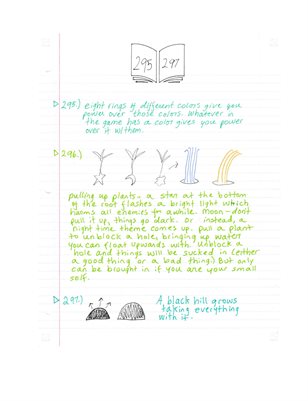 295 297
295.) eight rings of different colors give you
power over those colors. Whatever in
the game has a color gives you power
over it w/them.
296.)
pulling up plants - a star at the bottom
of the root flashes a bright light which
harms all enemies for awhile. Moon - don't
pull it up, things go dark. Or instead, a
night time theme comes up. pull a plant
to unblock a hole, bringing up water
you can float upwards with. Unblock a
hole and things will be sucked in (either
a good thing or a bad thing.) But only
can be brought in if you are your small
self.
297.)
A black hill grows
taking everything
with it.